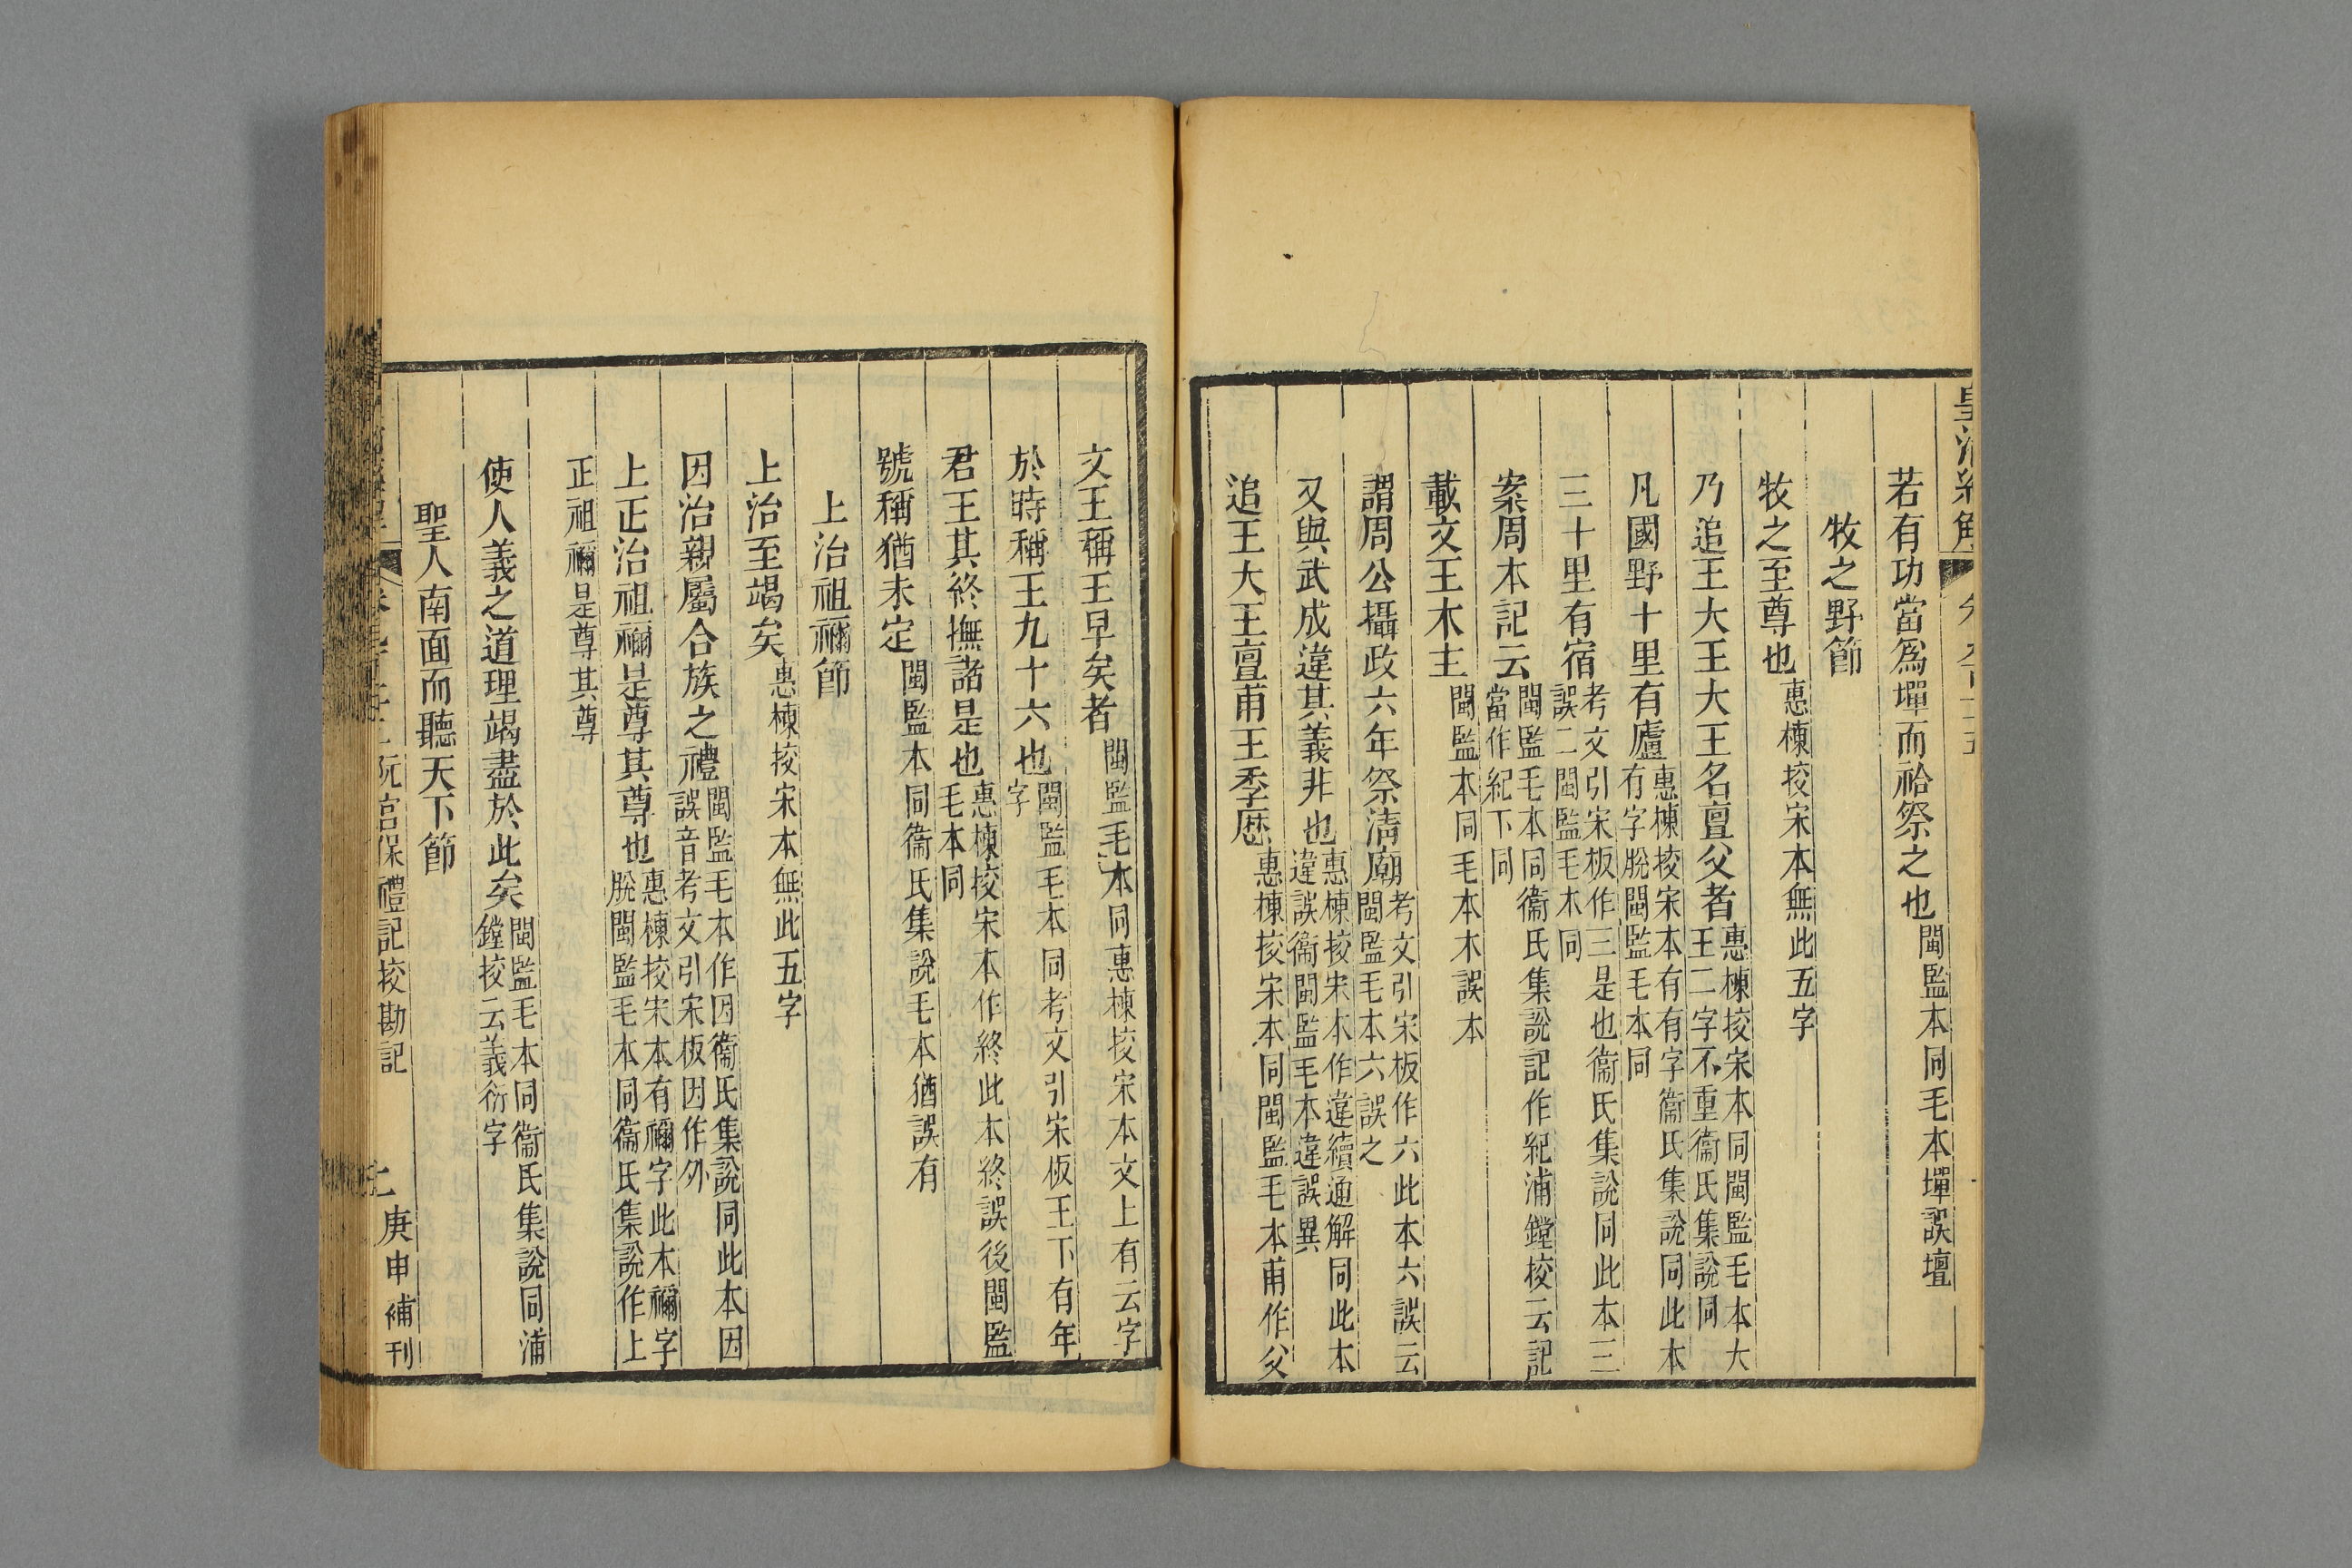 皇清經解
若有功當爲墠而祫祭之也閩監本同毛本墠誤壇
牧之野節
牧之至尊也惠棟挍宋本無此五字
乃追王大王大王名亶父者惠棟挍宋本同閩監毛本大王二字不重衞氏集說同
凡國野十里有廬惠棟挍宋本有有字衞氏集說同此本有字脫閩監毛本同
三十里有宿考文引宋板作三是也衞氏集說同此本三誤二閩監毛本同
案周本記云閩監毛本同衞氏集說記作紀浦鏜校云記當作紀下同
載文王木主閩監本同毛本木誤本
謂周公攝政六年祭淸廟考文引宋板作六此本六誤云閩監毛本六誤之
又與武成違其義非也惠棟挍宋本作違續通解同此本違誤衞閩監毛本違誤異
追王大王亶甫王季歷惠棟挍宋本同閩監毛本甫作父
文王稱王早矣者閩監毛本同惠棟挍宋本文上有云字
於時稱王九十六也閩監毛本同考文引宋板王下有年字
君王其終撫諸是也惠棟挍宋本作終此本終誤後閩監毛本同
號稱猶未定閩監本同衞氏集說毛本猶誤有
上治祖禰節
上治至竭矣惠棟挍宋本無此五字
因治親屬合族之禮閩監毛本作因衞氏集說同此本因誤音考文引宋板因作外
上正治祖禰是尊其尊也惠棟挍宋本有禰字此本禰字脫閩監毛本同衞氏集說作上
正祖禰是尊其尊
使人義之道理竭盡於此矣閩監毛本同衞氏集說同浦鏜挍云義衍字
聖人南面而聽天下節
阮宮保禮記挍勘記
庚申補刊